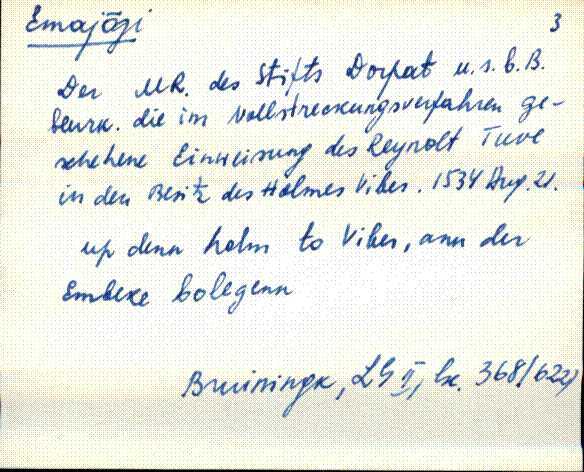 Emajõgi
3
Der MR. des Stifts Dorpat u. s. b. B.
beurk. die im Vollstreckungsverfahren ge-
schehene Einweisung des Reynolt Tuve
in den Besitz des Holmes Viber. 1534 Aug. 21.
up denn holm to Viber, ann der
Embeke belegenn
Bruiningk, LG II, lk. 368/622)